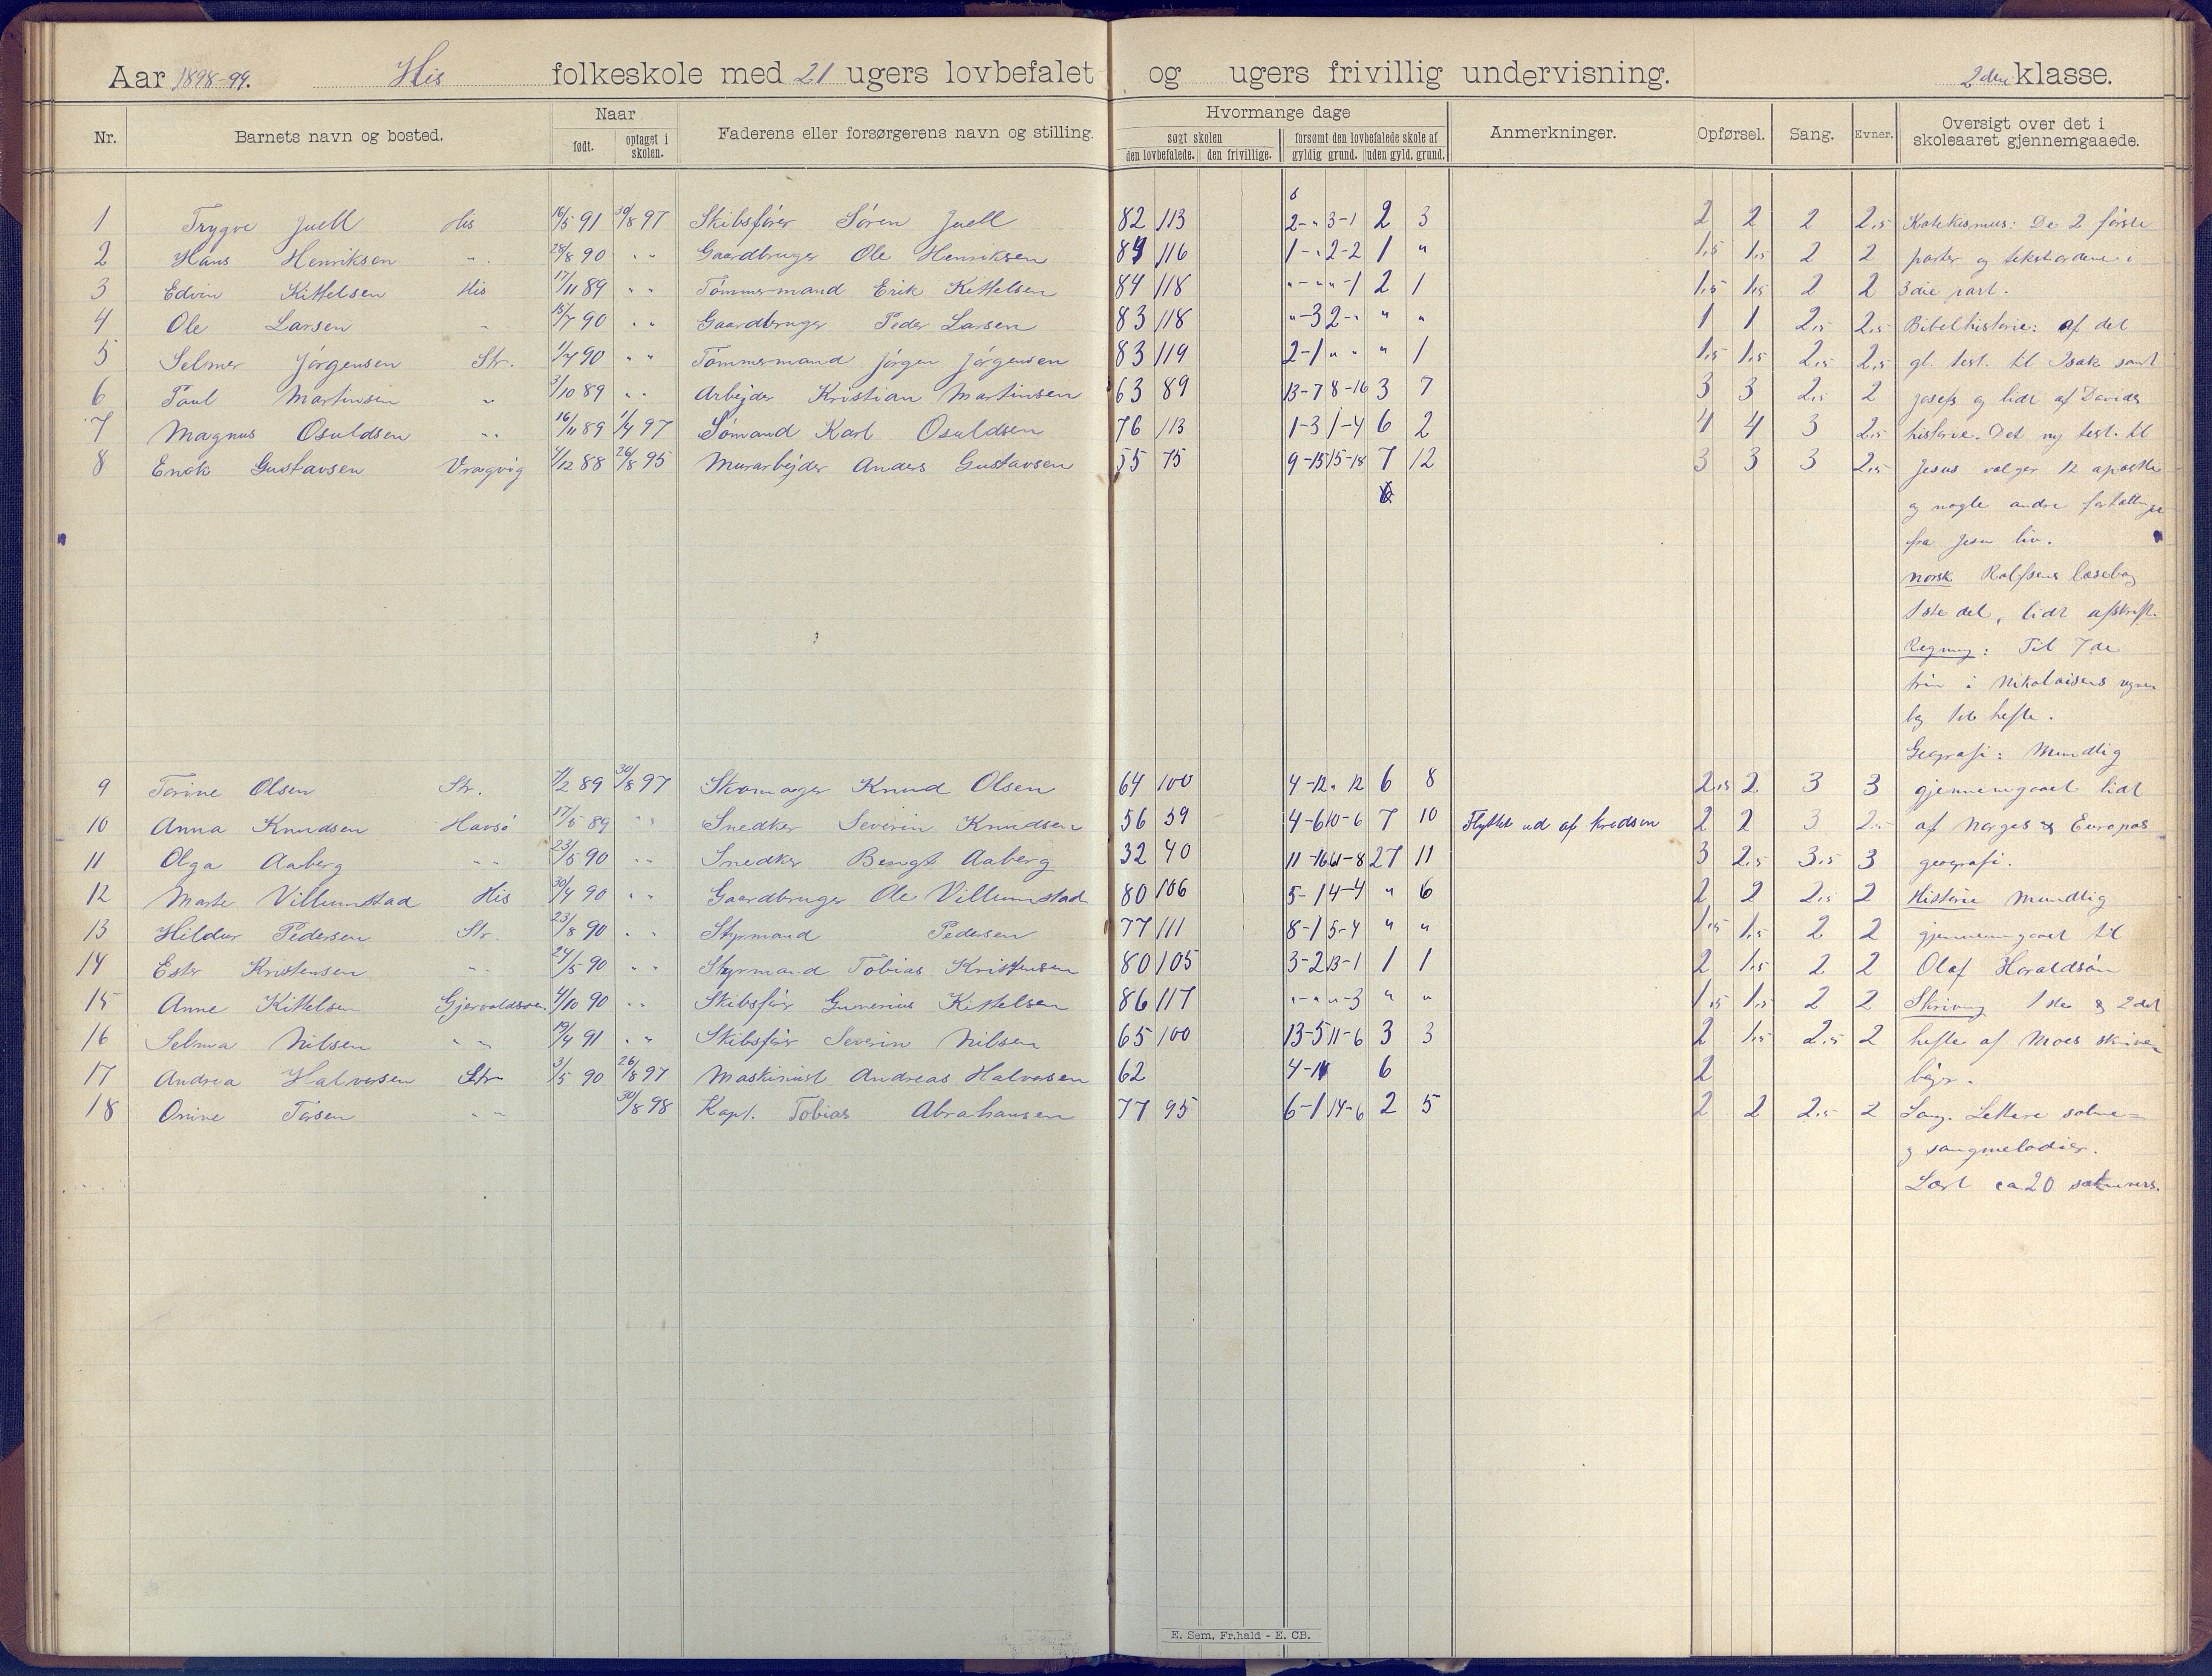 Aar 1898-99. His folkeskole med 21 ugers lovbefalet og ugers frivillig undervisning. 2den klasse.
Nr. Barnets navn og bosted. Naar født. optaget i skolen. Faderens eller forsørgerens navn og stilling. Hvormange dage søgt skolen den lovbefalede. den frivillige. forsømt den lovbefalede skole af gyldig grund. uden gyld. grund. Anmerkninger. Opførsel. Sang. Evner. Oversigt over det i skoleaaret gjennemgaaede.
1 Trygve Juell His 16/5 91 30/8 97 Skibsfører Søren Juell 82 113 2-" 3-1 2 3 2 2 2 2,5 Katekismus: De 2 første
2 Hans Henriksen " 28/8 90 " " Gaardbruger Ole Henriksen 84 116 1-" 2-2 1 " 1,5 1,5 2 2 parter og tekstordene i
3 Edvin Kittelsen His 17/11 89 " " Tømmermand Erik Kittelsen 84 118 "-" "-1 2 1 1,5 1,5 2 2 3die part.
4 Ole Larsen " 15/7 90 " " Gaardbruger Peder Larsen 83 118 "-3 2-" " " 1 1 2,5 2,5 Bibelhistorie: af det
5 Selmer Jørgensen Str. 1/4 90 " " Tømmermand Jørgen Jørgensen 83 119 2-1 " " " 1 1,5 1,5 2,5 2,5 gl. test. til Isak samt
6 Paul Martinsen " 3/10 89 " " Arbejder Kristian Martinsen 63 89 13-7 8-16 3 7 3 3 2,5 2 Josefs og lidt af Davids
7 Magnus Osuldsen " " 16/11 89 1/4 97 Sømand Karl Osuldsen 76 113 1-3 1-4 6 2 4 4 3 2,5 historie. Det ny test. til
8 Enok Gustavsen Vragvig 4/12 88 26/8 95 Murarbejder Anders Gustavsen 55 75 9-15 15-18 7 12 3 3 3 2,5 Jesus valger 12 apostle
og nogle andre fortællinger
fra Jesu liv.
Norsk Rolfsens læsebog
1ste del, lidt afskrift.
Regning: Til 7de
trin i Nikolaisens regne
bog 1ste hefte.
Geografi: Mundtlig
9 Torine Olsen Str. 4/2 89 30/8 97 Skomager Knud Olsen 64 100 4-12 " 12 6 8 2,5 2 3 3 gjennemgaaet lidt
10 Anna Knudsen Havsø 17/5 89 " " Snedker Severin Knudsen 56 59 4-6 10-6 7 10 Flyttet ud af kredsen 2 2 3 2,5 af Norges og Europas
11 Olga Aaberg " " 23/5 90 " " Snedker Bengt Aaberg 32 40 27 11 3 2,5 3,5 3 geografi.
12 Marte Villumstad His 30/4 90 " " Gaardbruger Ole Villumstad 80 106 5-1 4-4 " 6 2 2 2,5 2 Historie Mundtlig
13 Hildur Pedersen Str. 23/8 90 " " Styrmand Pedersen 77 111 8-1 5-4 " " 1,5 1,5 2 2 gjennemgaaet til
14 Ester Kristensen " " 24/5 90 " " Styrmand Tobias Kristensen 80 105 3-2 13-1 1 1 2 1,5 2 2 Olaf Haraldsøn
15 Anne Kittelsen Gjervoldsøen 4/10 90 " " Skibsfør Gunerius Kittelsen 86 117 "-" "-3 " " 1,5 1,5 2 2 Skrivning 1ste og 2det
16 Selma Nilsen " " 19/4 91 " " Skibsfør Severin Nilsen 65 100 13-5 11-6 3 3 2 1,5 2,5 2 hefte af Moes skrive
17 Andrea Halvorsen Str 3/5 90 26/8 97 Maskinist Andreas Halvorsen 62 6 2 bøger.
18 Onine Tørsen " " 30/8 98 Kapt. Tobias Abrahamsen 77 95 6-1 14-6 2 5 2 2 2,5 2 Sang. Lettere salme-
og sangmelodier.
Lært ca 20 salmevers.
E. Sem, Fr.hald - E. CB.